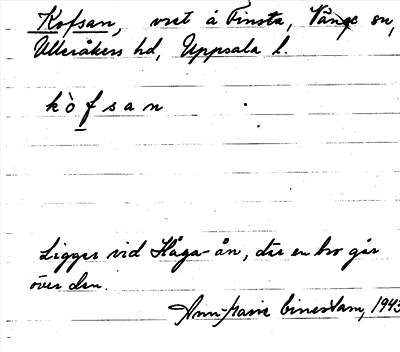 Kofsan, vret å Finsta, Vänge sn,
Ulleråkers hd, Uppsala l.
kòfsan
Ligger vid Håga-ån, där en bro går
över den.
Ann-Marie 1943